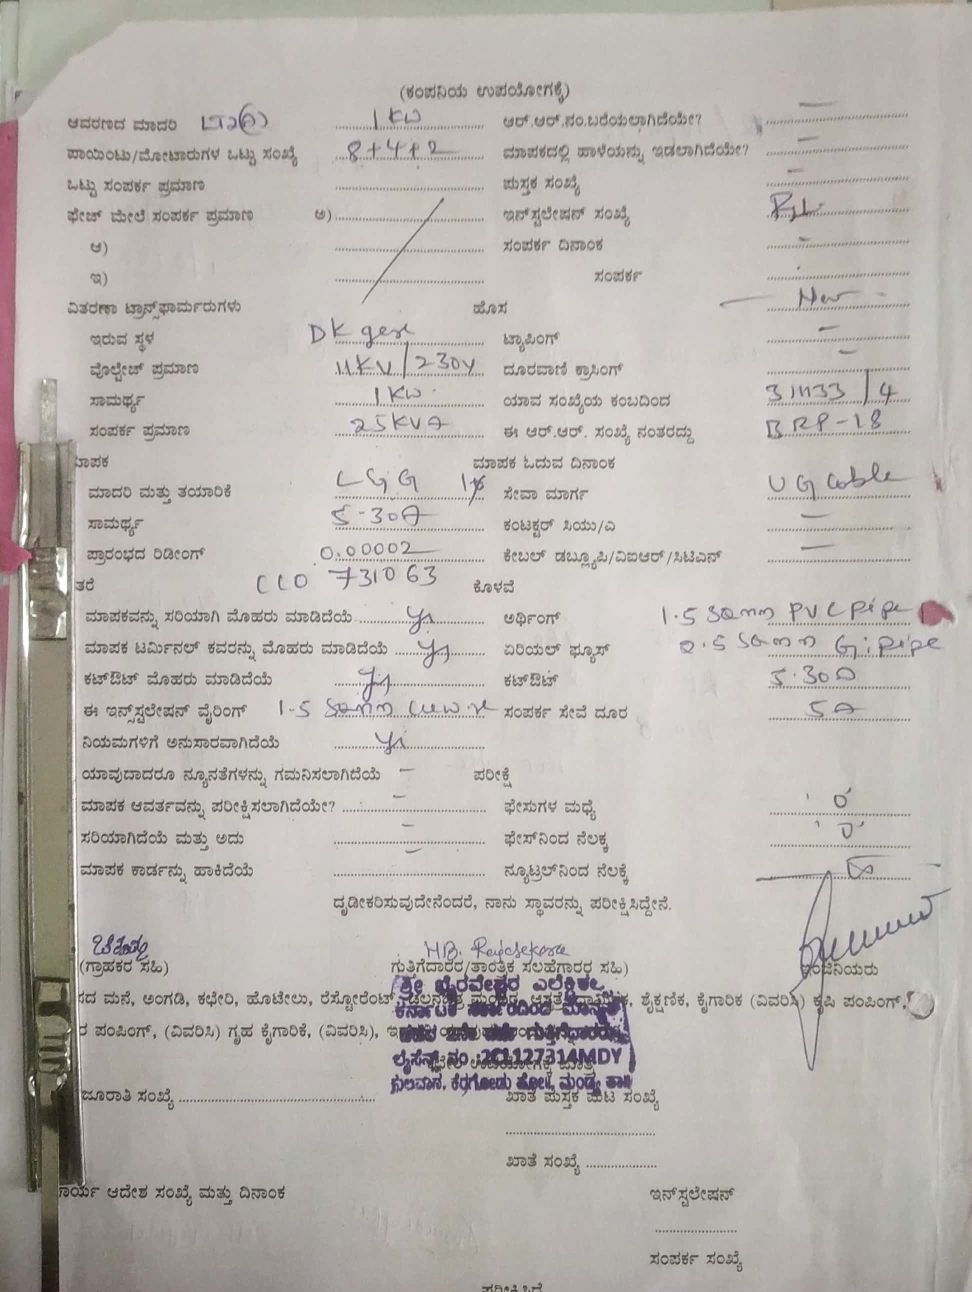 (ಕಂಪನಿಯ ಉಪಯೋಗಕ್ಕೆ)
ಆವರಣದ ಮಾದರಿ 1 KW ಆರ್.ಆರ್.ನಂ.ಬರೆಯಲಾಗಿದೆಯೇ? —
ಪಾಯಿಂಟು/ಮೋಟಾರುಗಳ ಒಟ್ಟು ಸಂಖ್ಯೆ 8+4+2 ಮಾಪಕದಲ್ಲಿ ಹಾಳೆಯನ್ನು ಇಡಲಾಗಿದೆಯೇ? —
ಒಟ್ಟು ಸಂಪರ್ಕ ಪ್ರಮಾಣ ಪುಸ್ತಕ ಸಂಖ್ಯೆ —
ಫೇಜ್ ಮೇಲೆ ಸಂಪರ್ಕ ಪ್ರಮಾಣ ಅ) ಇನ್‌ಸ್ಟಲೇಷನ್ ಸಂಖ್ಯೆ
ಆ) ಸಂಪರ್ಕ ದಿನಾಂಕ -
ಇ) ಸಂಪರ್ಕ
ವಿತರಣಾ ಟ್ರಾನ್ಸ್‌ಫಾರ್ಮರುಗಳು ಹೊಸ — New -
ಇರುವ ಸ್ಥಳ DK gere ಟ್ಯಾಪಿಂಗ್ —
ವೊಲ್ಟೇಜ್ ಪ್ರಮಾಣ 11KV/230V ದೂರವಾಣಿ ಕ್ರಾಸಿಂಗ್ —
ಸಾಮರ್ಥ್ಯ 1KW ಯಾವ ಸಂಖ್ಯೆಯ ಕಂಬದಿಂದ
ಸಂಪರ್ಕ ಪ್ರಮಾಣ 25KVA ಈ ಆರ್.ಆರ್. ಸಂಖ್ಯೆ ನಂತರದ್ದು BRP-18
ಮಾಪಕ ಮಾಪಕ ಓದುವ ದಿನಾಂಕ
ಮಾದರಿ ಮತ್ತು ತಯಾರಿಕೆ L&G ಸೇವಾ ಮಾರ್ಗ UG Cable
ಸಾಮರ್ಥ್ಯ 5-30A ಕಂಟಕ್ಟರ್ ಸಿಯು/ಎ —
ಪ್ರಾರಂಭದ ರಿಡೀಂಗ್ 0.00002 ಕೇಬಲ್ ಡಬ್ಲ್ಯೂಪಿ/ವಿಐಆರ್/ಸಿಟಿಎನ್ —
ತರೆ CLO 731063 ಕೊಳವೆ
ಮಾಪಕವನ್ನು ಸರಿಯಾಗಿ ಮೊಹರು ಮಾಡಿದೆಯೆ ys ಅರ್ಥಿಂಗ್ 1.5 SQmm PVC pipe
ಮಾಪಕ ಟರ್ಮಿನಲ್ ಕವರನ್ನು ಮೊಹರು ಮಾಡಿದೆಯೆ ys ಏರಿಯಲ್ ಫ್ಯೂಸ್ 2.5 SQmm G.I pipe
ಕಟ್‌ಔಟ್ ಮೊಹರು ಮಾಡಿದೆಯೆ ys ಕಟ್‌ಔಟ್ 5.30A
ಈ ಇನ್ಸ್‌ಸ್ಟಲೇಷನ್ ವೈರಿಂಗ್ 1.5 SQmm ಸಂಪರ್ಕ ಸೇವೆ ದೂರ 5A
ನಿಯಮಗಳಿಗೆ ಅನುಸಾರವಾಗಿದೆಯೆ ys
ಯಾವುದಾದರೂ ನ್ಯೂನತೆಗಳನ್ನು ಗಮನಿಸಲಾಗಿದೆಯೆ — ಪರೀಕ್ಷೆ
ಮಾಪಕ ಆವರ್ತವನ್ನು ಪರೀಕ್ಷಿಸಲಾಗಿದೆಯೇ? — ಫೇಸುಗಳ ಮಧ್ಯೆ '0'
ಸರಿಯಾಗಿದೆಯೆ ಮತ್ತು ಅದು — ಫೇಸ್‌ನಿಂದ ನೆಲಕ್ಕೆ '0'
ಮಾಪಕ ಕಾರ್ಡನ್ನು ಹಾಕಿದೆಯೆ — ನ್ಯೂಟ್ರಲ್‌ನಿಂದ ನೆಲಕ್ಕೆ
ದೃಡೀಕರಿಸುವುದೇನೆಂದರೆ, ನಾನು ಸ್ಥಾವರನ್ನು ಪರೀಕ್ಷಿಸಿದ್ದೇನೆ.
H.B. Rajasekara
(ಗ್ರಾಹಕರ ಸಹಿ) ಗುತ್ತಿಗೆದಾರರ/ತಾಂತ್ರಿಕ ಸಲಹೆಗಾರರ ಸಹಿ) ಇಂಜಿನಿಯರು
ಶ್ರೀ ಭೈರವೇಶ್ವರ ಎಲೆಕ್ಟ್ರಿಕಲ್ಸ್
ಸದ ಮನೆ, ಅಂಗಡಿ, ಕಛೇರಿ, ಹೊಟೇಲು, ರೆಸ್ಟೋರೆಂಟ್, ಶೈಕ್ಷಣಿಕ, ಕೈಗಾರಿಕ (ವಿವರಿಸಿ) ಕೃಷಿ ಪಂಪಿಂಗ್,
ಕರ್ನಾಟಕ ಸರ್ಕಾರದಿಂದ ಮಾನ್ಯತೆ
ರ ಪಂಪಿಂಗ್, (ವಿವರಿಸಿ) ಗೃಹ ಕೈಗಾರಿಕೆ, (ವಿವರಿಸಿ),
ಲೈಸೆನ್ಸ್ ನಂ :2CL127314MDY
ಕೆರಗೋಡು ಹೋಬಳಿ, ಮಂಡ್ಯ ತಾ||
ಜೂರಾತಿ ಸಂಖ್ಯೆ ಖಾತೆ ಪುಸ್ತಕ ಪುಟ ಸಂಖ್ಯೆ
ಖಾತೆ ಸಂಖ್ಯೆ
ಕಾರ್ಯ ಆದೇಶ ಸಂಖ್ಯೆ ಮತ್ತು ದಿನಾಂಕ ಇನ್‌ಸ್ಟಲೇಷನ್
ಸಂಪರ್ಕ ಸಂಖ್ಯೆ
ಪರೀಕ್ಷಿಸಿದೆ